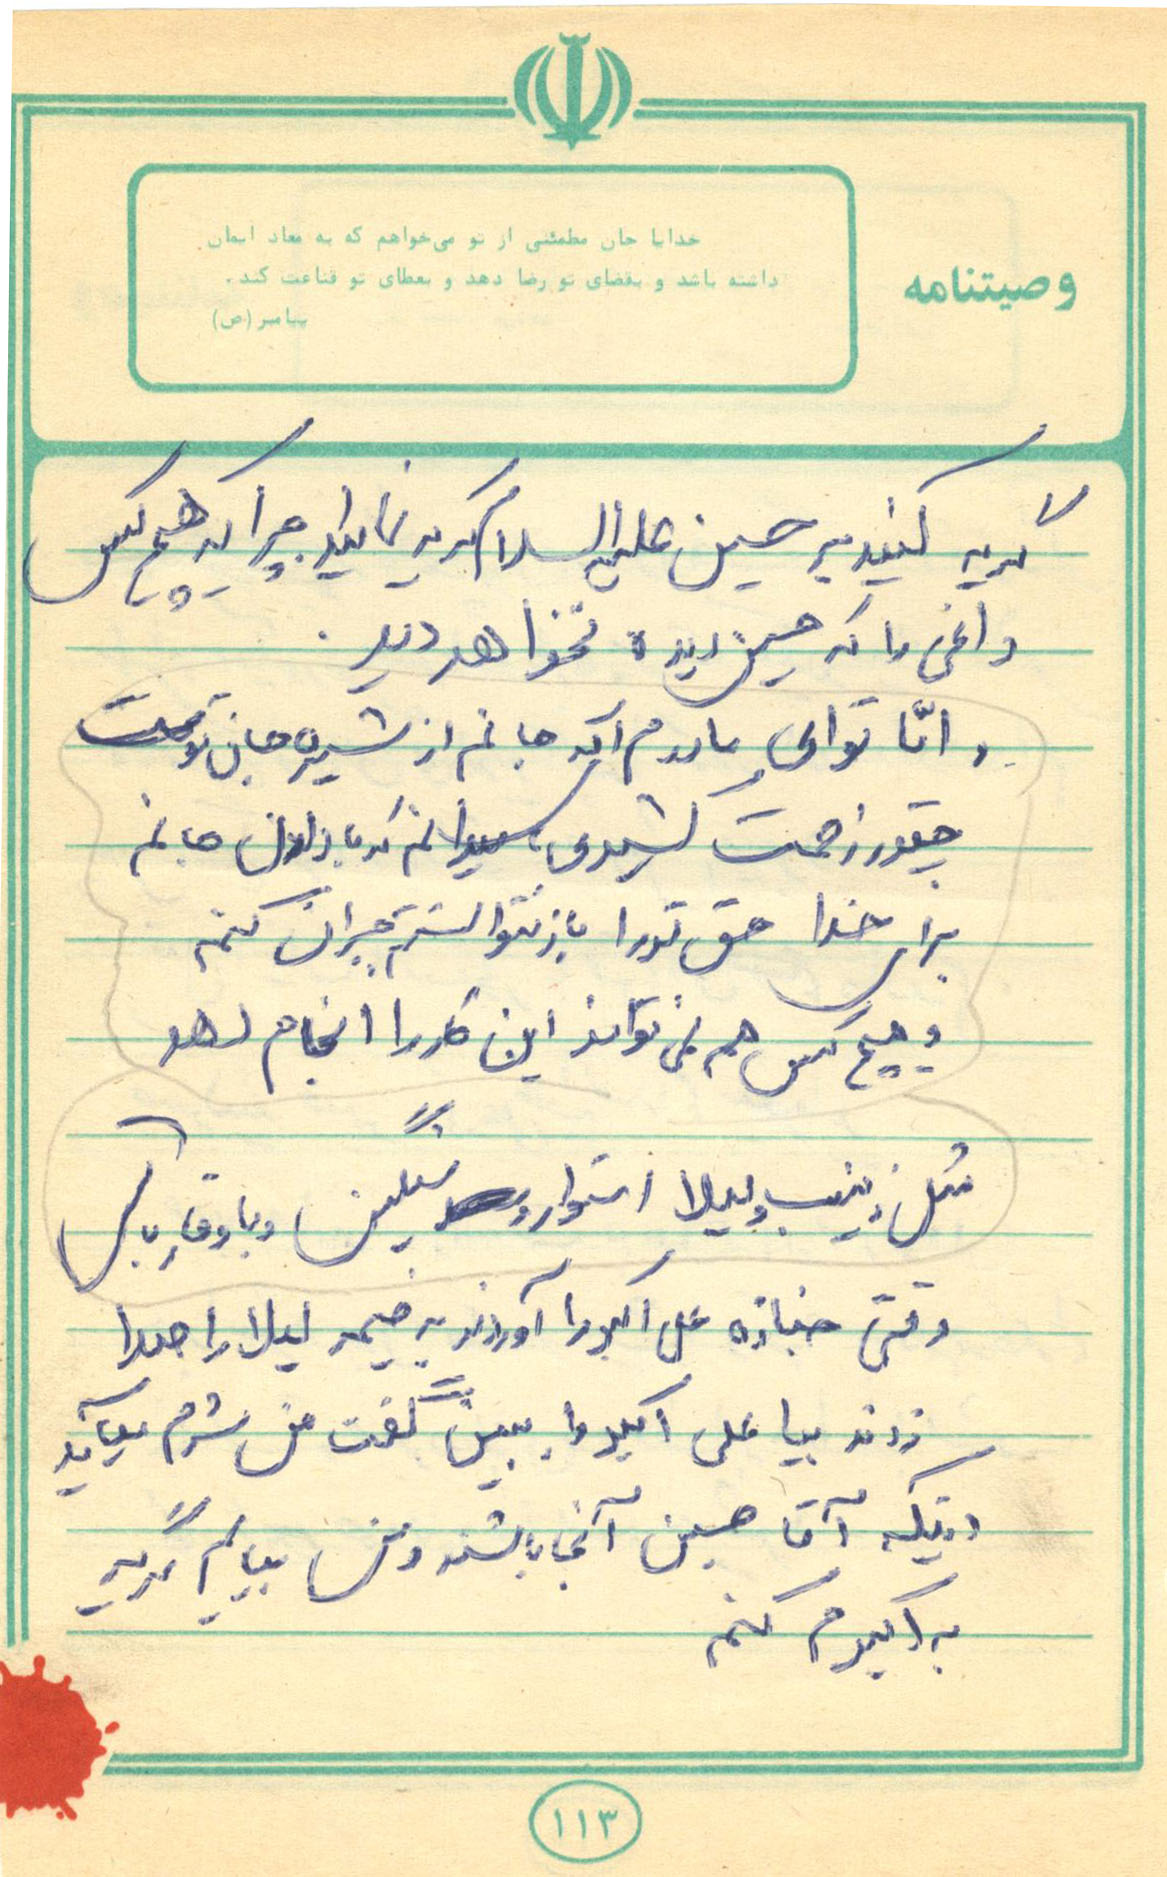 وصیتنامه
خدایا جان مطمئنی از تو می‌خواهم که به معاد ایمان
داشته باشد و بقضای تو رضا دهد و بعطای تو قناعت کند.
پیامبر (ص)
گریه کنید بر حسین علیه السلام گریه نمایید چرا که هیچ کس
داغی را که حسین دیده نخواهد دید.
و امّا تو ای مادرم ای که جانم از شیره جان توست
چقدر زحمت کشیدی، میدانم که با دادن جانم
برای خدا حق تو را باز نتوانستم جبران کنم
و هیچ کس هم نمی تواند این کار را انجام دهد
مثل زینب و لیلا استوار و سنگین و با وقار باش
وقتی جنازه علی اکبر را آوردند به خیمه لیلا را صدا
زدند بیا علی اکبر را ببین گفت من شرم میآید
وقتیکه آقا حسین آنجا باشند و من بیایم گریه
به اکبرم کنم
۱۱۳